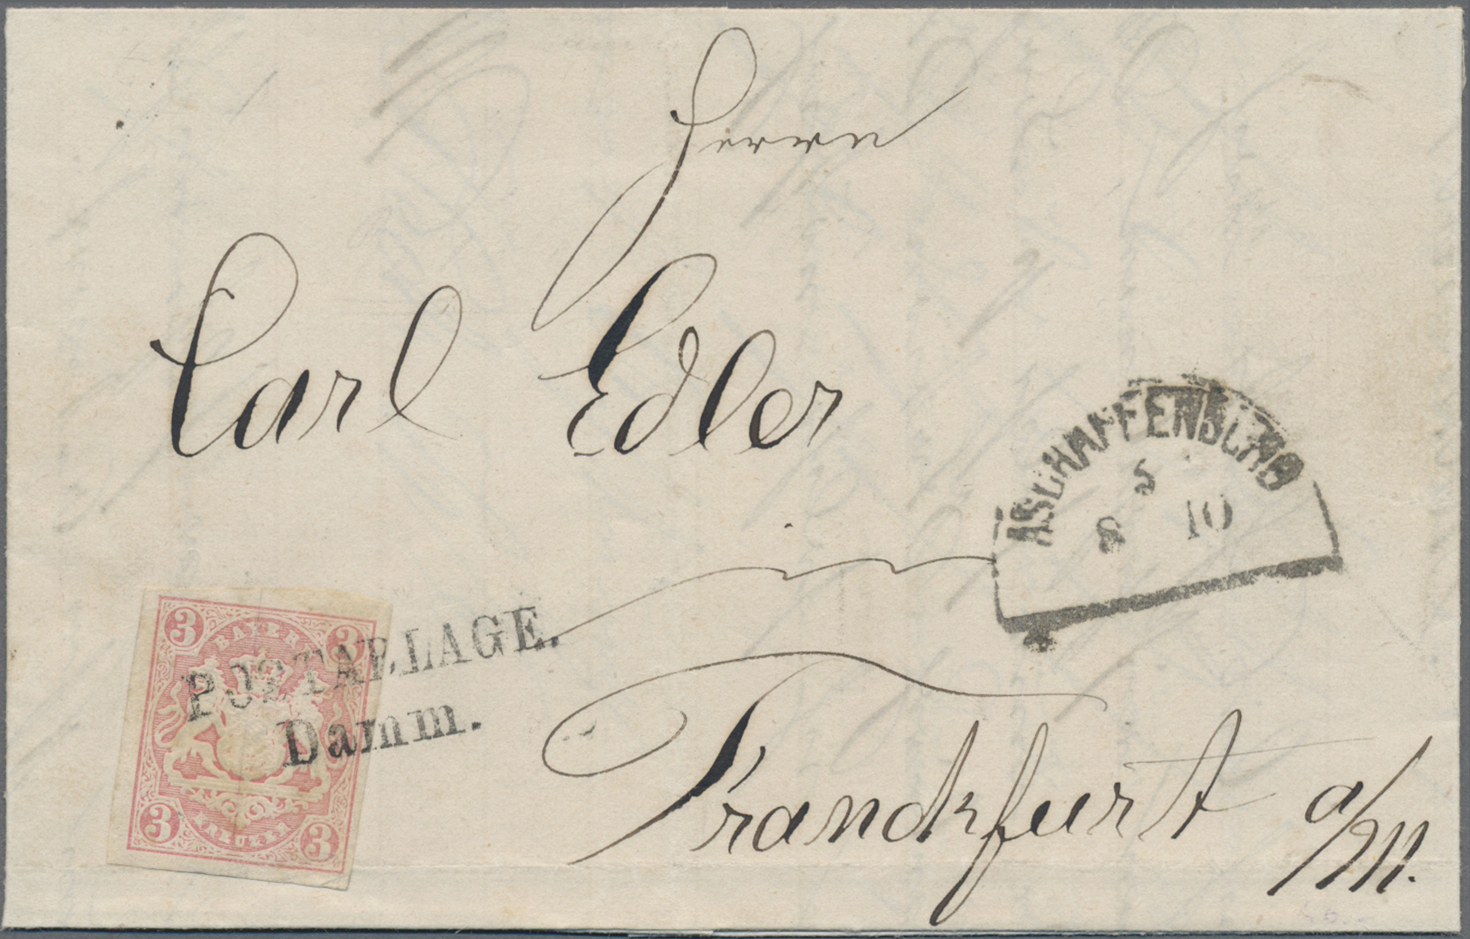 Herrn
Carl Edler
ASCHAFFENBURG
5
8 10
3 BAYERN 3
POSTABLAGE.
Damm.
3 KREUZER 3
Franckfurt a/M.